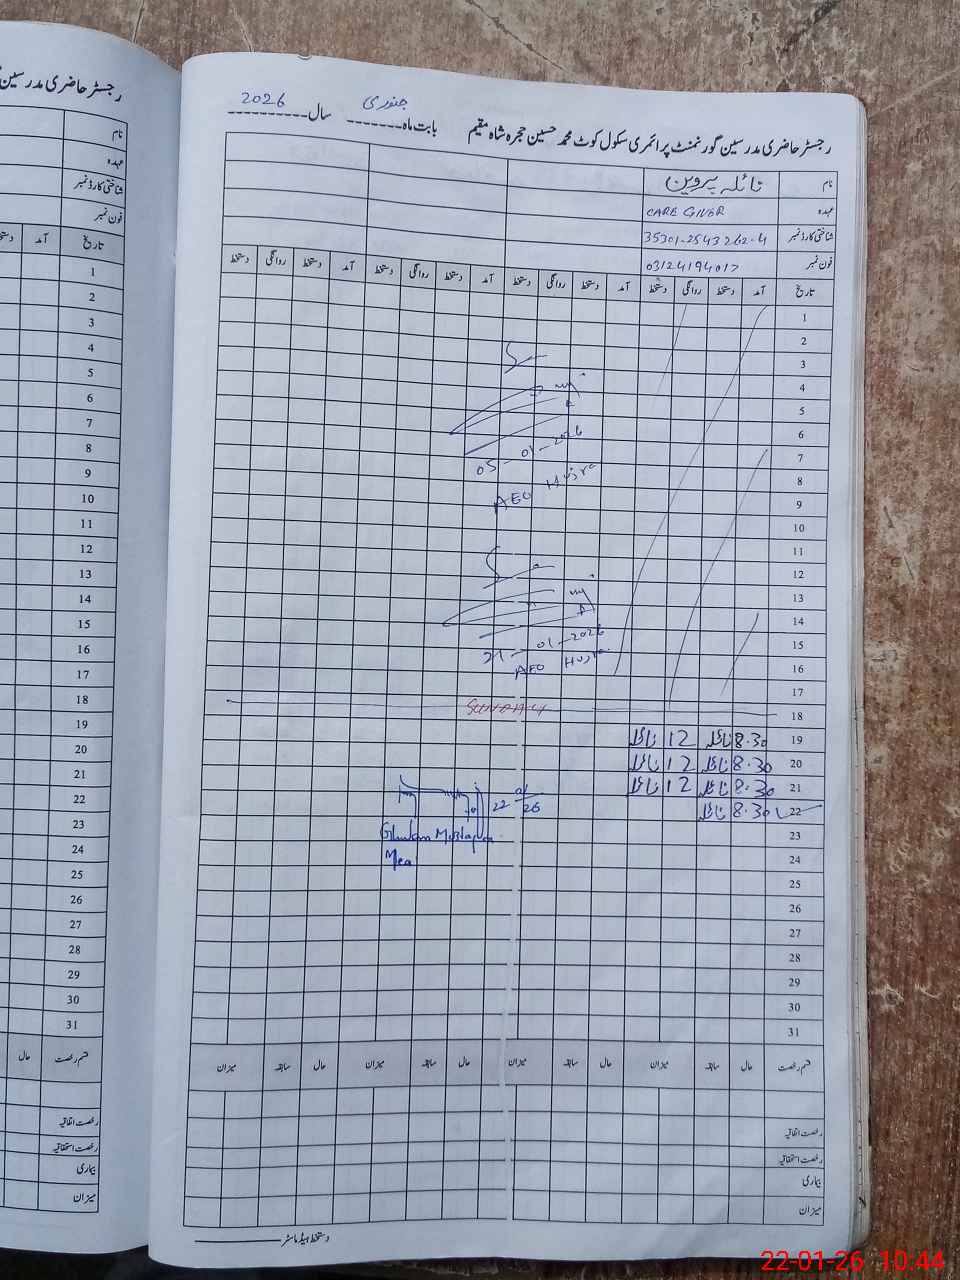 رجسٹر حاضری مدرسین گورنمنٹ پرائمری سکول کوٹ محمد حسین حجرہ شاہ مقیم بابت ماہ جنوری سال 2026
نام نائلہ پروین
عہدہ CARE GIVER
شناختی کارڈ نمبر 35301-2543262-4
فون نمبر 03124194017
تاریخ آمد دستخط روانگی دستخط آمد دستخط روانگی دستخط آمد دستخط روانگی دستخط آمد دستخط روانگی دستخط
1
2
3
4
5
6
05-01-2026
7
8
AEO Hujra
9
10
11
12
13
14
15
21-01-2026
16
AEO Hujra
17
18
SUNDAY
19 8.30 نائلہ 12 نائلہ
20 8.30 نائلہ 12 نائلہ
21 8.30 نائلہ 12 نائلہ
22 8.30 نائلہ
22 01 26
23
Ghulam Mustafa
24
Mea
25
26
27
28
29
30
31
قسم رخصت حال سابقہ میزان حال سابقہ میزان حال سابقہ میزان حال سابقہ میزان
رخصت اتفاقیہ
رخصت استحقاقیہ
بیماری
میزان
دستخط ہیڈ ماسٹر
رجسٹر حاضری مدرسین
نام
عہدہ
شناختی کارڈ نمبر
فون نمبر
تاریخ آمد
1
2
3
4
5
6
7
8
9
10
11
12
13
14
15
16
17
18
19
20
21
22
23
24
25
26
27
28
29
30
31
قسم رخصت حال
رخصت اتفاقیہ
رخصت استحقاقیہ
بیماری
میزان
22-01-26 10:44